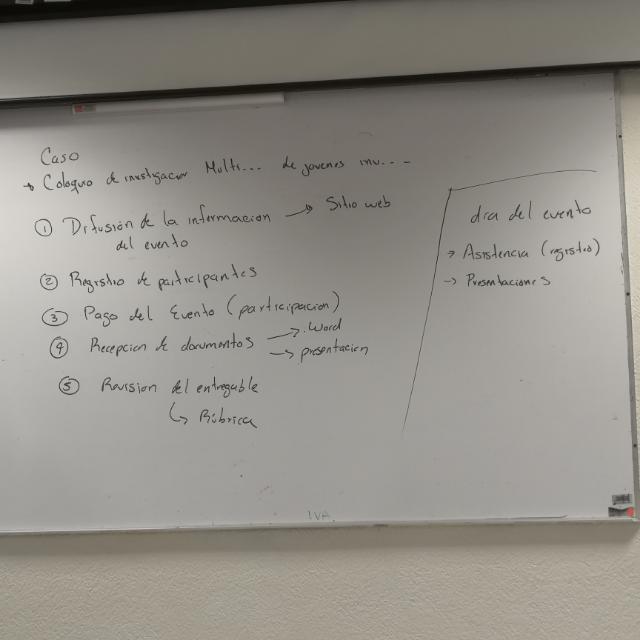 Caso
→ Coloquio de investigación Multi... de jovenes inv...
① Difusión de la informacion → Sitio web
del evento
② Registro de participantes
③ Pago del Evento (participacion)
④ Recepcion de documentos → .word
→ presentacion
⑤ Revision del entregable
↳ Rúbrica
dia del evento
→ Asistencia (registro)
→ Presentaciones
IVA